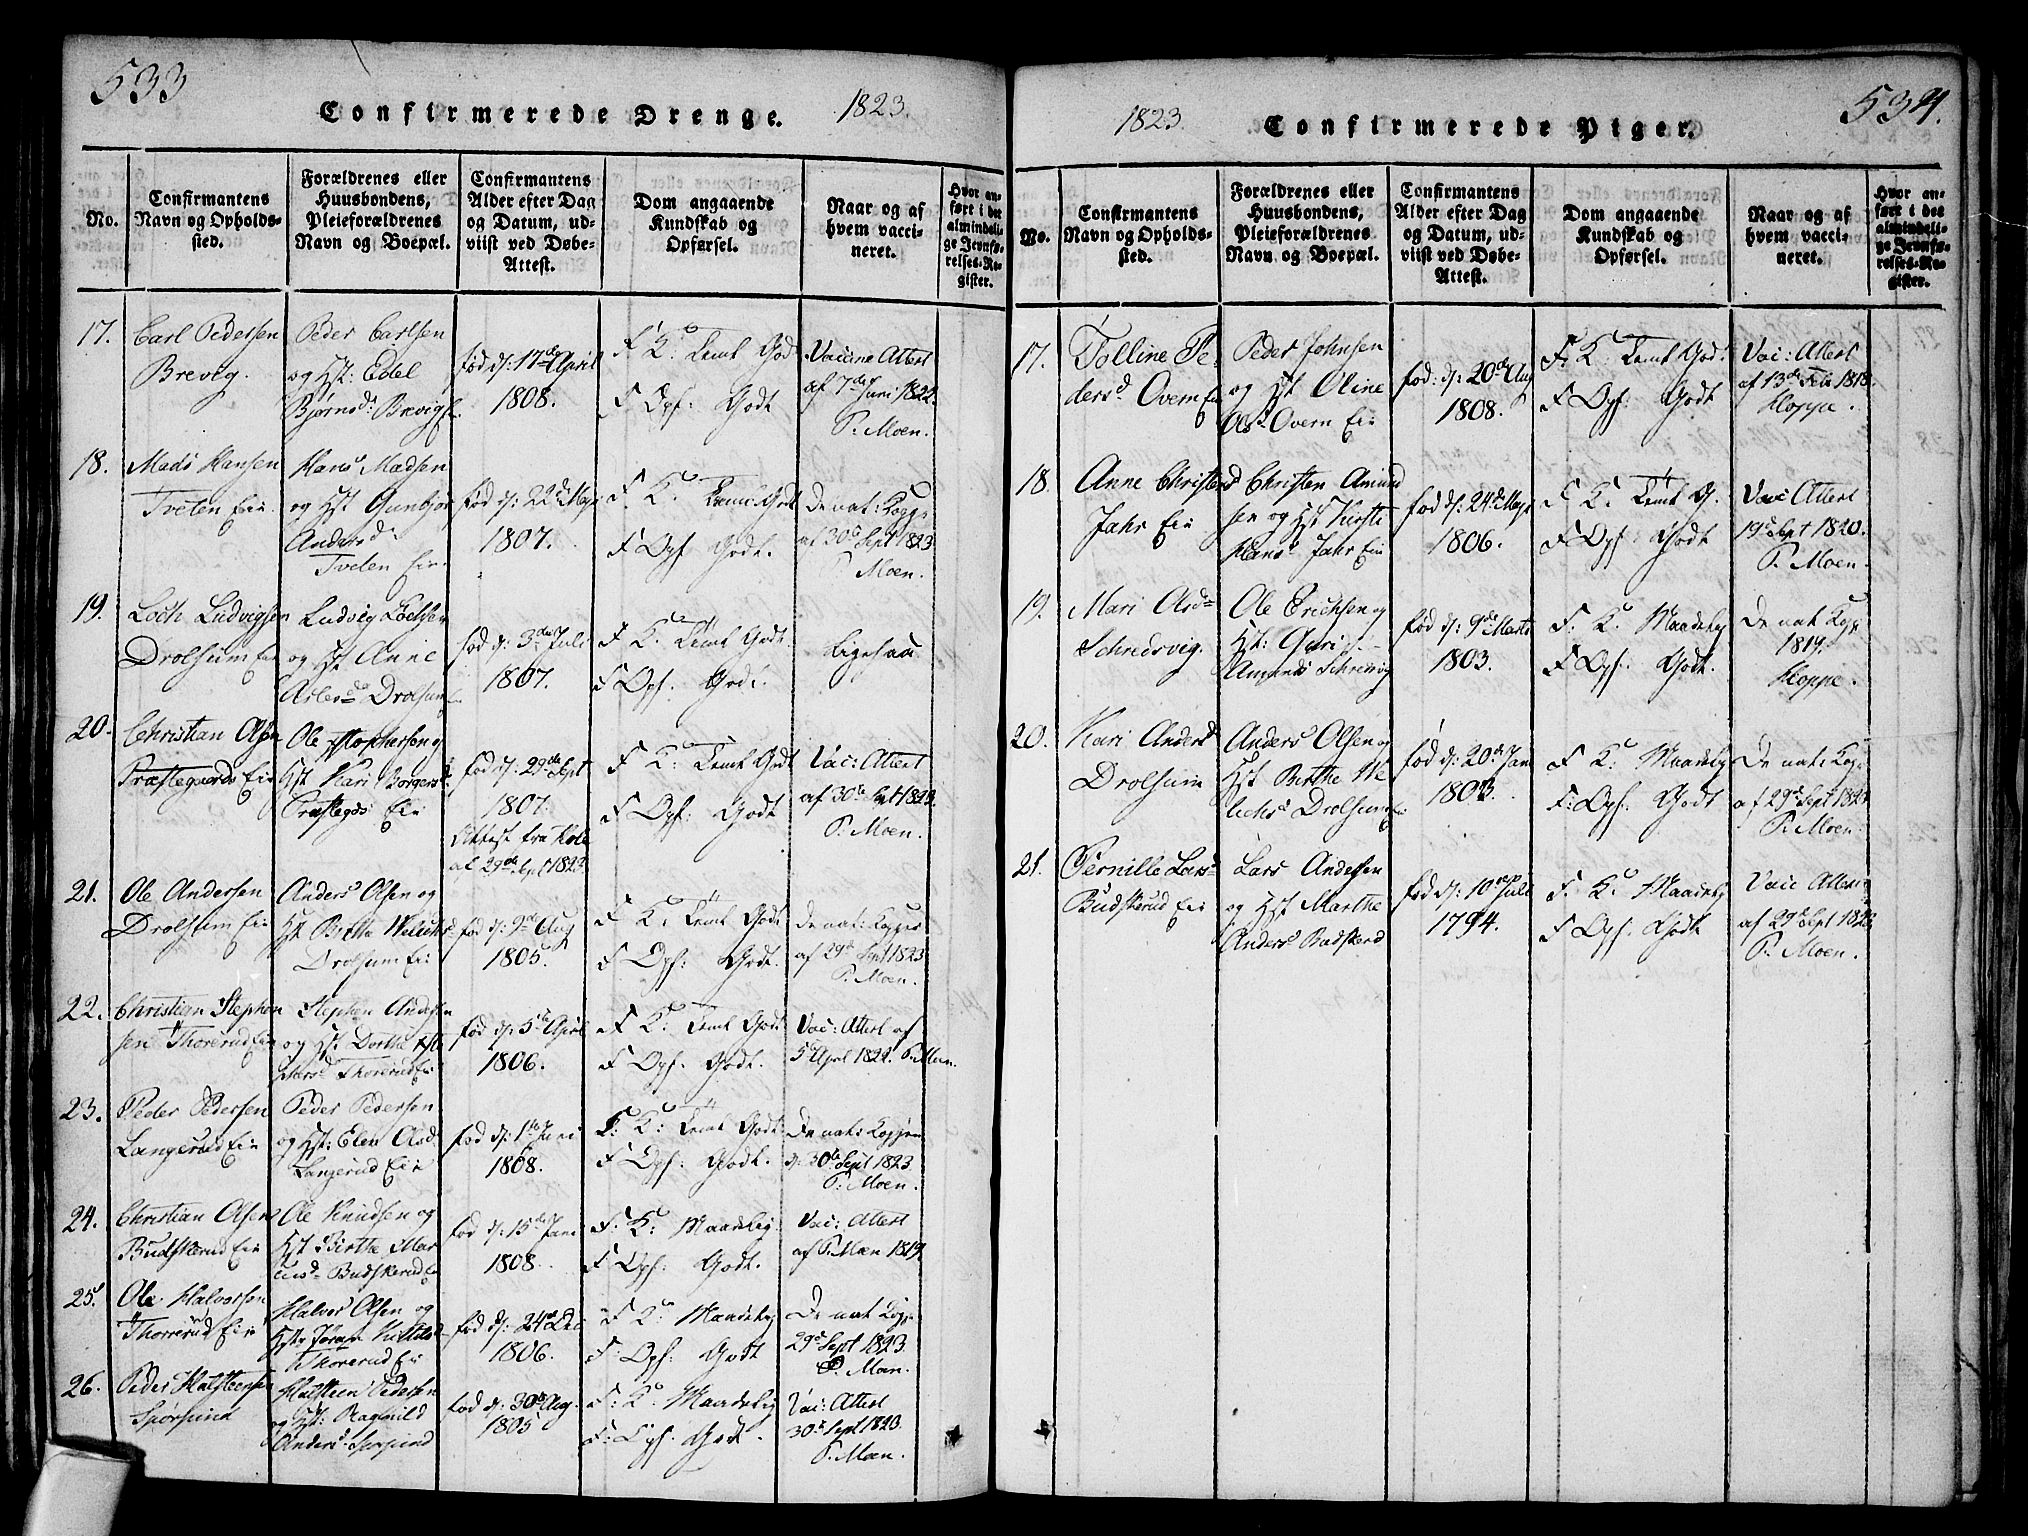 533
Confirmerede Drenge.
1823.
No.
Confirmantens
Navn og Opholds-
sted.
Forældrenes eller
Huusbondens,
Pleieforældrenes
Navn og Boepæl.
Confirmantens
Alder efter Dag
og Datum, ud-
viist ved Døbe-
Attest.
Dom angaaende
Kundskab og
Opførsel.
Naar og af
hvem vacci-
neret.
Hvor an-
ført i det
almindeli-
ge Jevnfø-
relses-Re-
gister.
17.
Carl Pedersen
Brevig.
Peder Carlsen
og Hst: Edel
Bjørnsd: Brevig
fød d: 17de April
1808.
F K: Temt Godt
F Opf: Godt
Vaccine Attest
af 7de Juni 1822
P. Moen.
18.
Mads Hansen
Tveten Eie
Hans Madsen
og Hst Gunbjør
Andersd
Tveten Eie
fød d: 22de Maji
1807.
F K: Temt Godt
F Opf Godt.
De nat: Kopp
af 30te Sept 1823
P. Moen.
19.
Loch Ludvigsen
Drolsum Eie
Ludvig Lochsen
og Hst Anne
Drolsum
fød d: 3de Juli
1807.
F K: Temt Godt
F Opf: Godt.
Ligesaa
20.
Christian Olsen
Præstegaards Eie
Ole
Hst Kari Borgers
Præstegds Eie
fød d: 29de Sept
1807.
Attest fra
af 29de Sept 1823
F K: Temt Godt
F Opf: Godt
Vac: Attest
af 30te Sept 1823.
P. Moen.
21.
Ole Andersen
Drolsum Eie
Anders Olsen og
Hst Birthe
Drolsum Eie
fød d: 9de Aug
1805.
F K: Temt Godt
F Opf: Godt.
De nat: Kopper
af 29de Sept 1823
P. Moen.
22.
Christian Stephen
sen Thorerud Eie
Stephen Andersen
og Hst Dorthe
Thorerud Eie
fød d: 5te April
1806.
F K: Temt Godt
F Opf: Godt.
Vac: Attest af
5te April 1822. P. Moen.
23.
Peder Pedersen
Langerud Eie
Peder Pedersen
og Hst: Elen Olsd
Langerud Eie
fød d: 1ste Juni
1808.
F: K: Temt Godt
F Opf: Godt.
De nat: Koppen
d: 30te Sept 1823.
P. Moen.
24.
Christian Olsen
Budskerud Eie
Ole Knudsen og
Hst Birthe Mar
Budskerud Eie
fød d: 15de Jani
1808.
F. K: Maadelig
F Opf: Godt.
Vac: Attest
af P. Moen 1819.
25.
Ole Halvorsen
Thorrerud Eie
Halvor Olsen og
Hst Jøran Kittilsd
Thorerud Eie
fød d: 24de Dec
1806.
F K: Maadelig
F: Opf: Godt
De nat Kopp
29de Sept 1823.
P. Moen.
26.
Peder Halsteensen
Sporpind
Halsteen Pedersen
og Hst: Ragnild
Andersd: Sporpind
fød d: 30te Aug.
1805
F: K: Maadelig
F: Opf: Godt.
Vac: Attest
30te Sept 1823.
P. Moen.
1823.
Confirmerede Piger.
534.
No.
Confirmantens
Navn og Opholds-
sted.
Forældrenes eller
Huusbondens,
Pleieforældrenes
Navn og Boepæl.
Confirmantens
Alder efter Dag
og Datum, ud-
viist ved Døbe-
Attest.
Dom angaaende
Kundskab og
Opførsel.
Naar og af
hvem vacci-
neret.
Hvor an-
ført i det
almindeli-
ge Jevnfø-
relses-Re-
gister.
17.
Tolline Pe-
dersd Overn Eie
Peder Johnsen
og Hst Oline
Olsd Overn Eie
fød: d: 20de Aug
1808.
F: K Temt Godt
F Opf: Godt
Vac: Attest
af 13de Feb 1818.
Hoppe.
18.
Anne Christensd
Jahr Eie
Christen Amund
sen og Hst Kirsti
Hansd Jahr Eie
fød d: 24de Maji
1806.
F K: Temt G.
F Opf: Godt
Vac Attest
19de Sept 1820.
P. Moen.
19.
Mari Olsd
Schredsvig.
Ole Erichsen og
Hst: Guri
Amunds Schredsvig
fød d: 9de Marts
1803.
F. K: Maadelig
F Opf: Godt.
De nat Kopp
1819.
Hoppe.
20.
Kari Andersd
Drolsum
Anders Olsen og
Hst Birthe We
lichsd Drolsum Eie
fød d: 20de Jan
1803.
F K: Maadelig
F: Opf: Godt
De nat: Kopp
af 29de Sept 1823
P. Moen.
21.
Pernille Larsd
Budskerud Eie
Lars Andersen
og Hst Marthe
Andersd Budskerud
fød d: 10de Juli
1794.
F. K: Maadelig
F Opf: Godt
Vacc Attest
af 29de Sept 1823.
P. Moen.